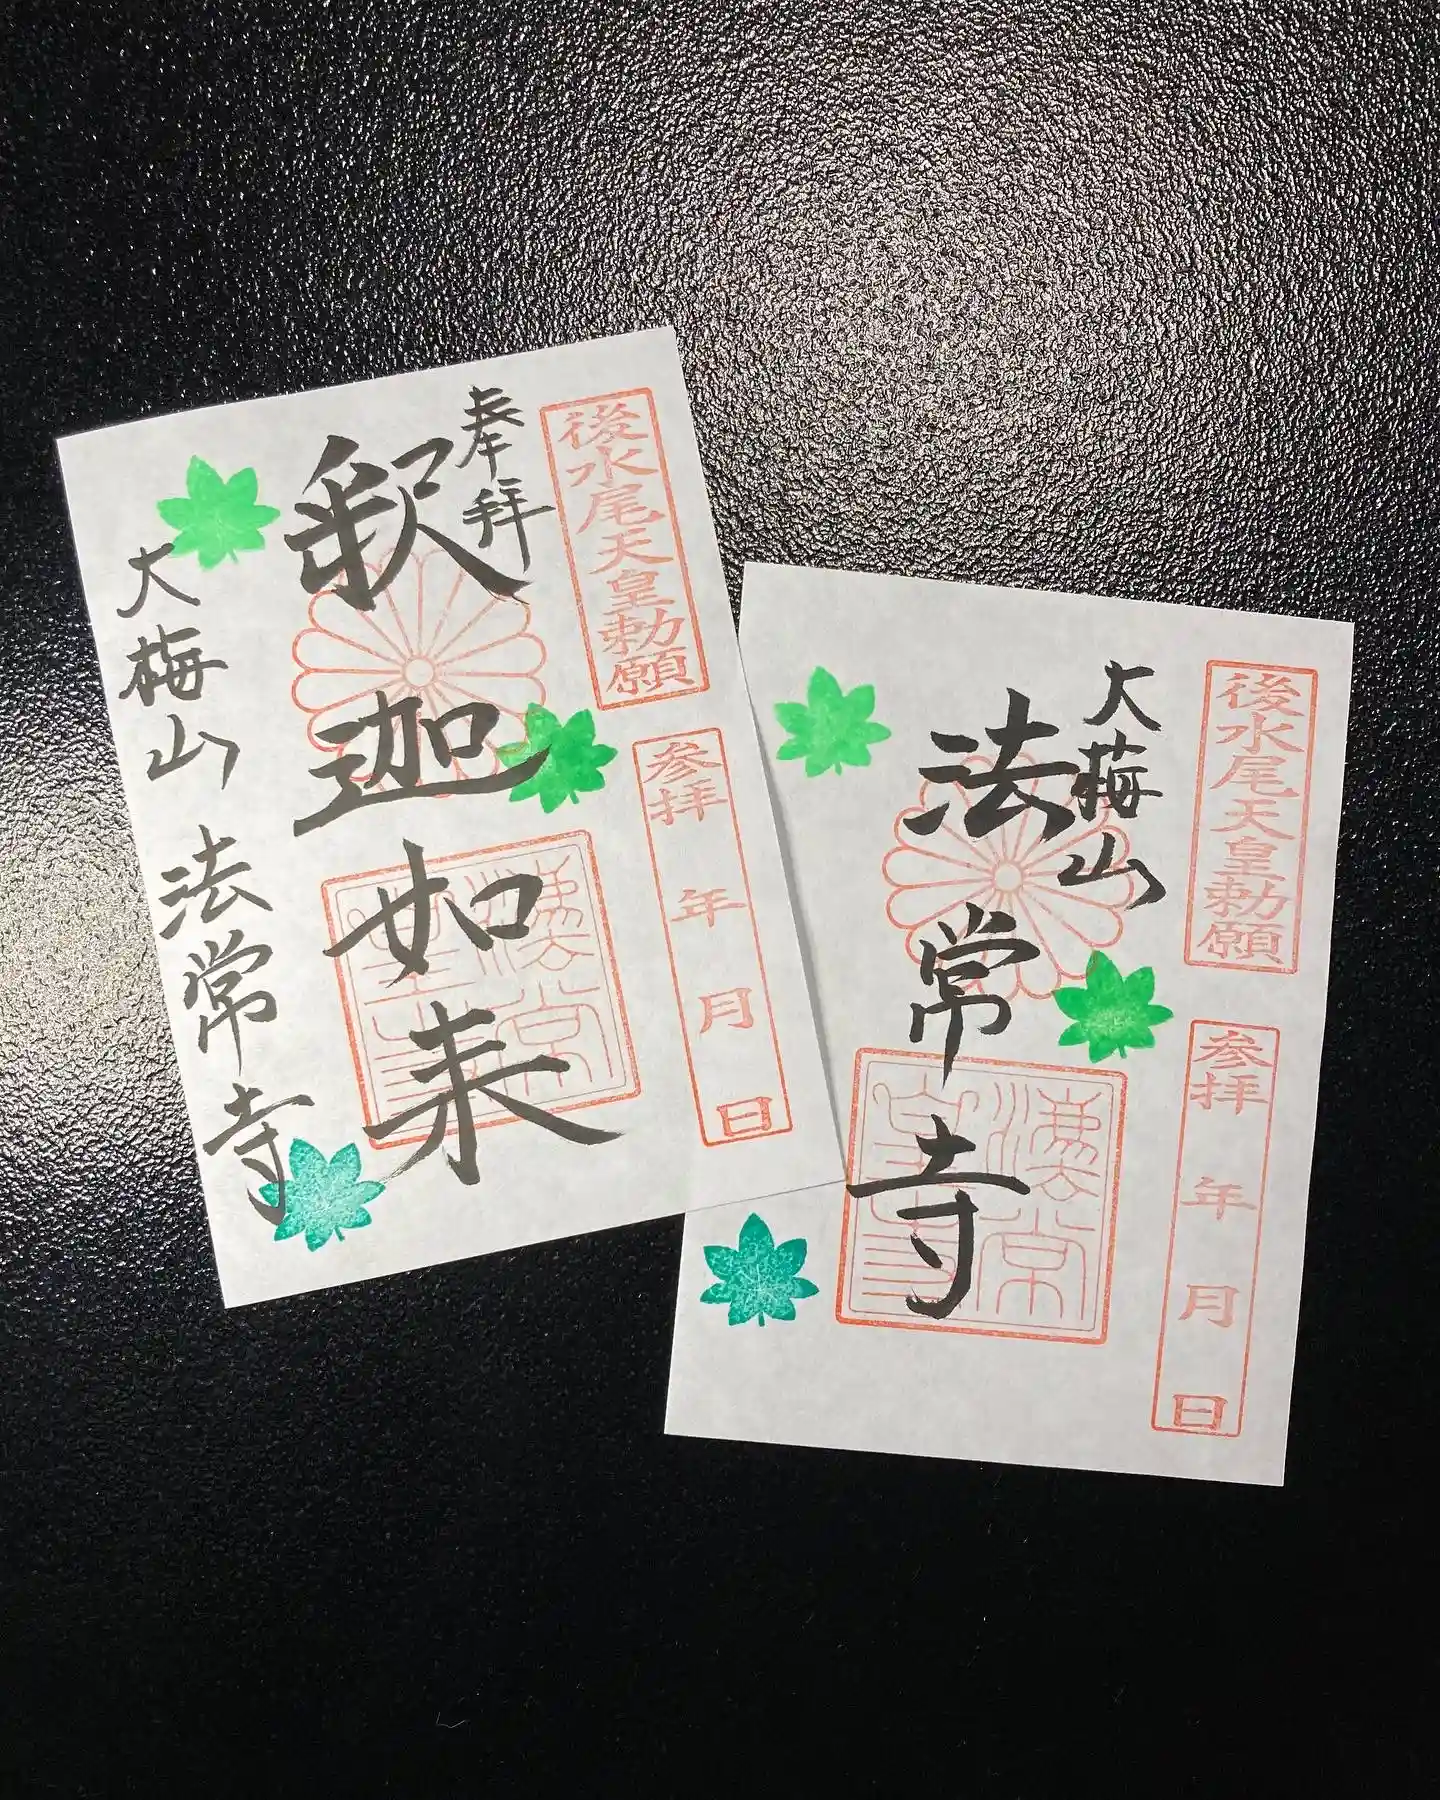 後水尾天皇勅願
参拝 年 月 日
奉拝
釈迦如来
大梅山 法常寺
後水尾天皇勅願
参拝 年 月 日
大梅山
法常寺